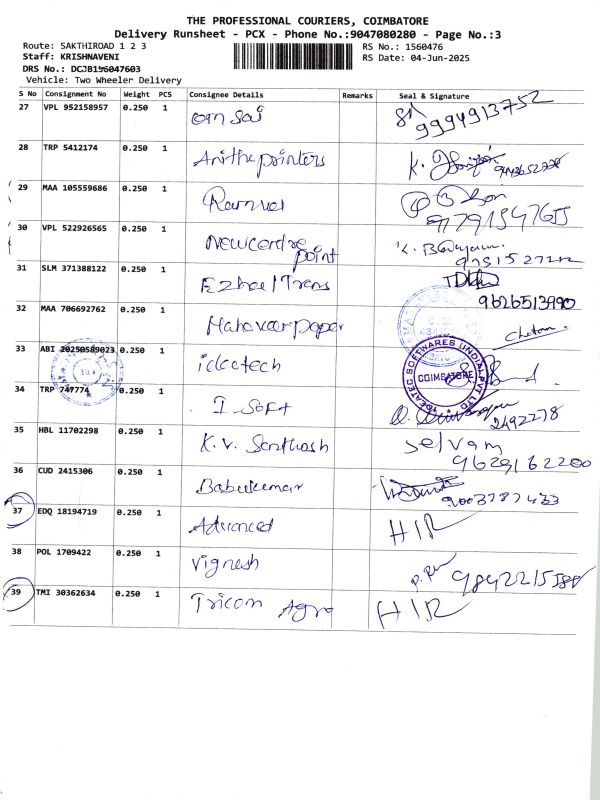 THE PROFESSIONAL COURIERS, COIMBATORE
Delivery Runsheet - PCX - Phone No.:9047080280 - Page No.:3
Route: SAKTHIROAD 1 2 3
RS No.: 1560476
Staff: KRISHNAVENI
RS Date: 04-Jun-2025
DRS No.: DCJB156047603
Vehicle: Two Wheeler Delivery
S No Consignment No Weight PCS Consignee Details Remarks Seal & Signature
27 VPL 952158957 0.250 1 om sai 9994913752
28 TRP 5412174 0.250 1 Anitha pointers
29 MAA 105559686 0.250 1
30 VPL 522926565 0.250 1 Newcentre point
31 SLM 371388122 0.250 1 Ezhael Trans 9626513990
32 MAA 706692762 0.250 1 Mahaveer paper Chetan
33 ABI 20250589023 0.250 1 ideatech
IDEATEC SOFTWARES (INDIA) PVT LTD
COIMBATORE
34 TRP 747774 0.250 1 I-Soft 2492278
35 HBL 11702298 0.250 1 K.V. Santhosh selvam 9629162200
36 CUD 2415306 0.250 1 Babukumar 9003787433
37 EDQ 18194719 0.250 1 Advanced HIR
38 POL 1709422 0.250 1 Vignesh
39 TMI 30362634 0.250 1 Tricom Agro HIR